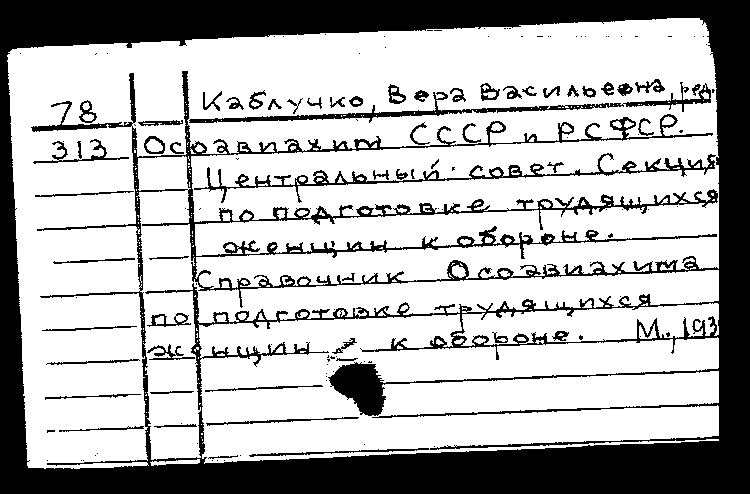 78 Каблучко, Вера Васильевна, ред.
313 Осоавиахим СССР и РСФСР.
Центральный совет. Секция
по подготовке трудящихся
женщин к обороне.
Справочник Осоавиахима
по подготовке трудящихся
женщин к обороне. М., 193